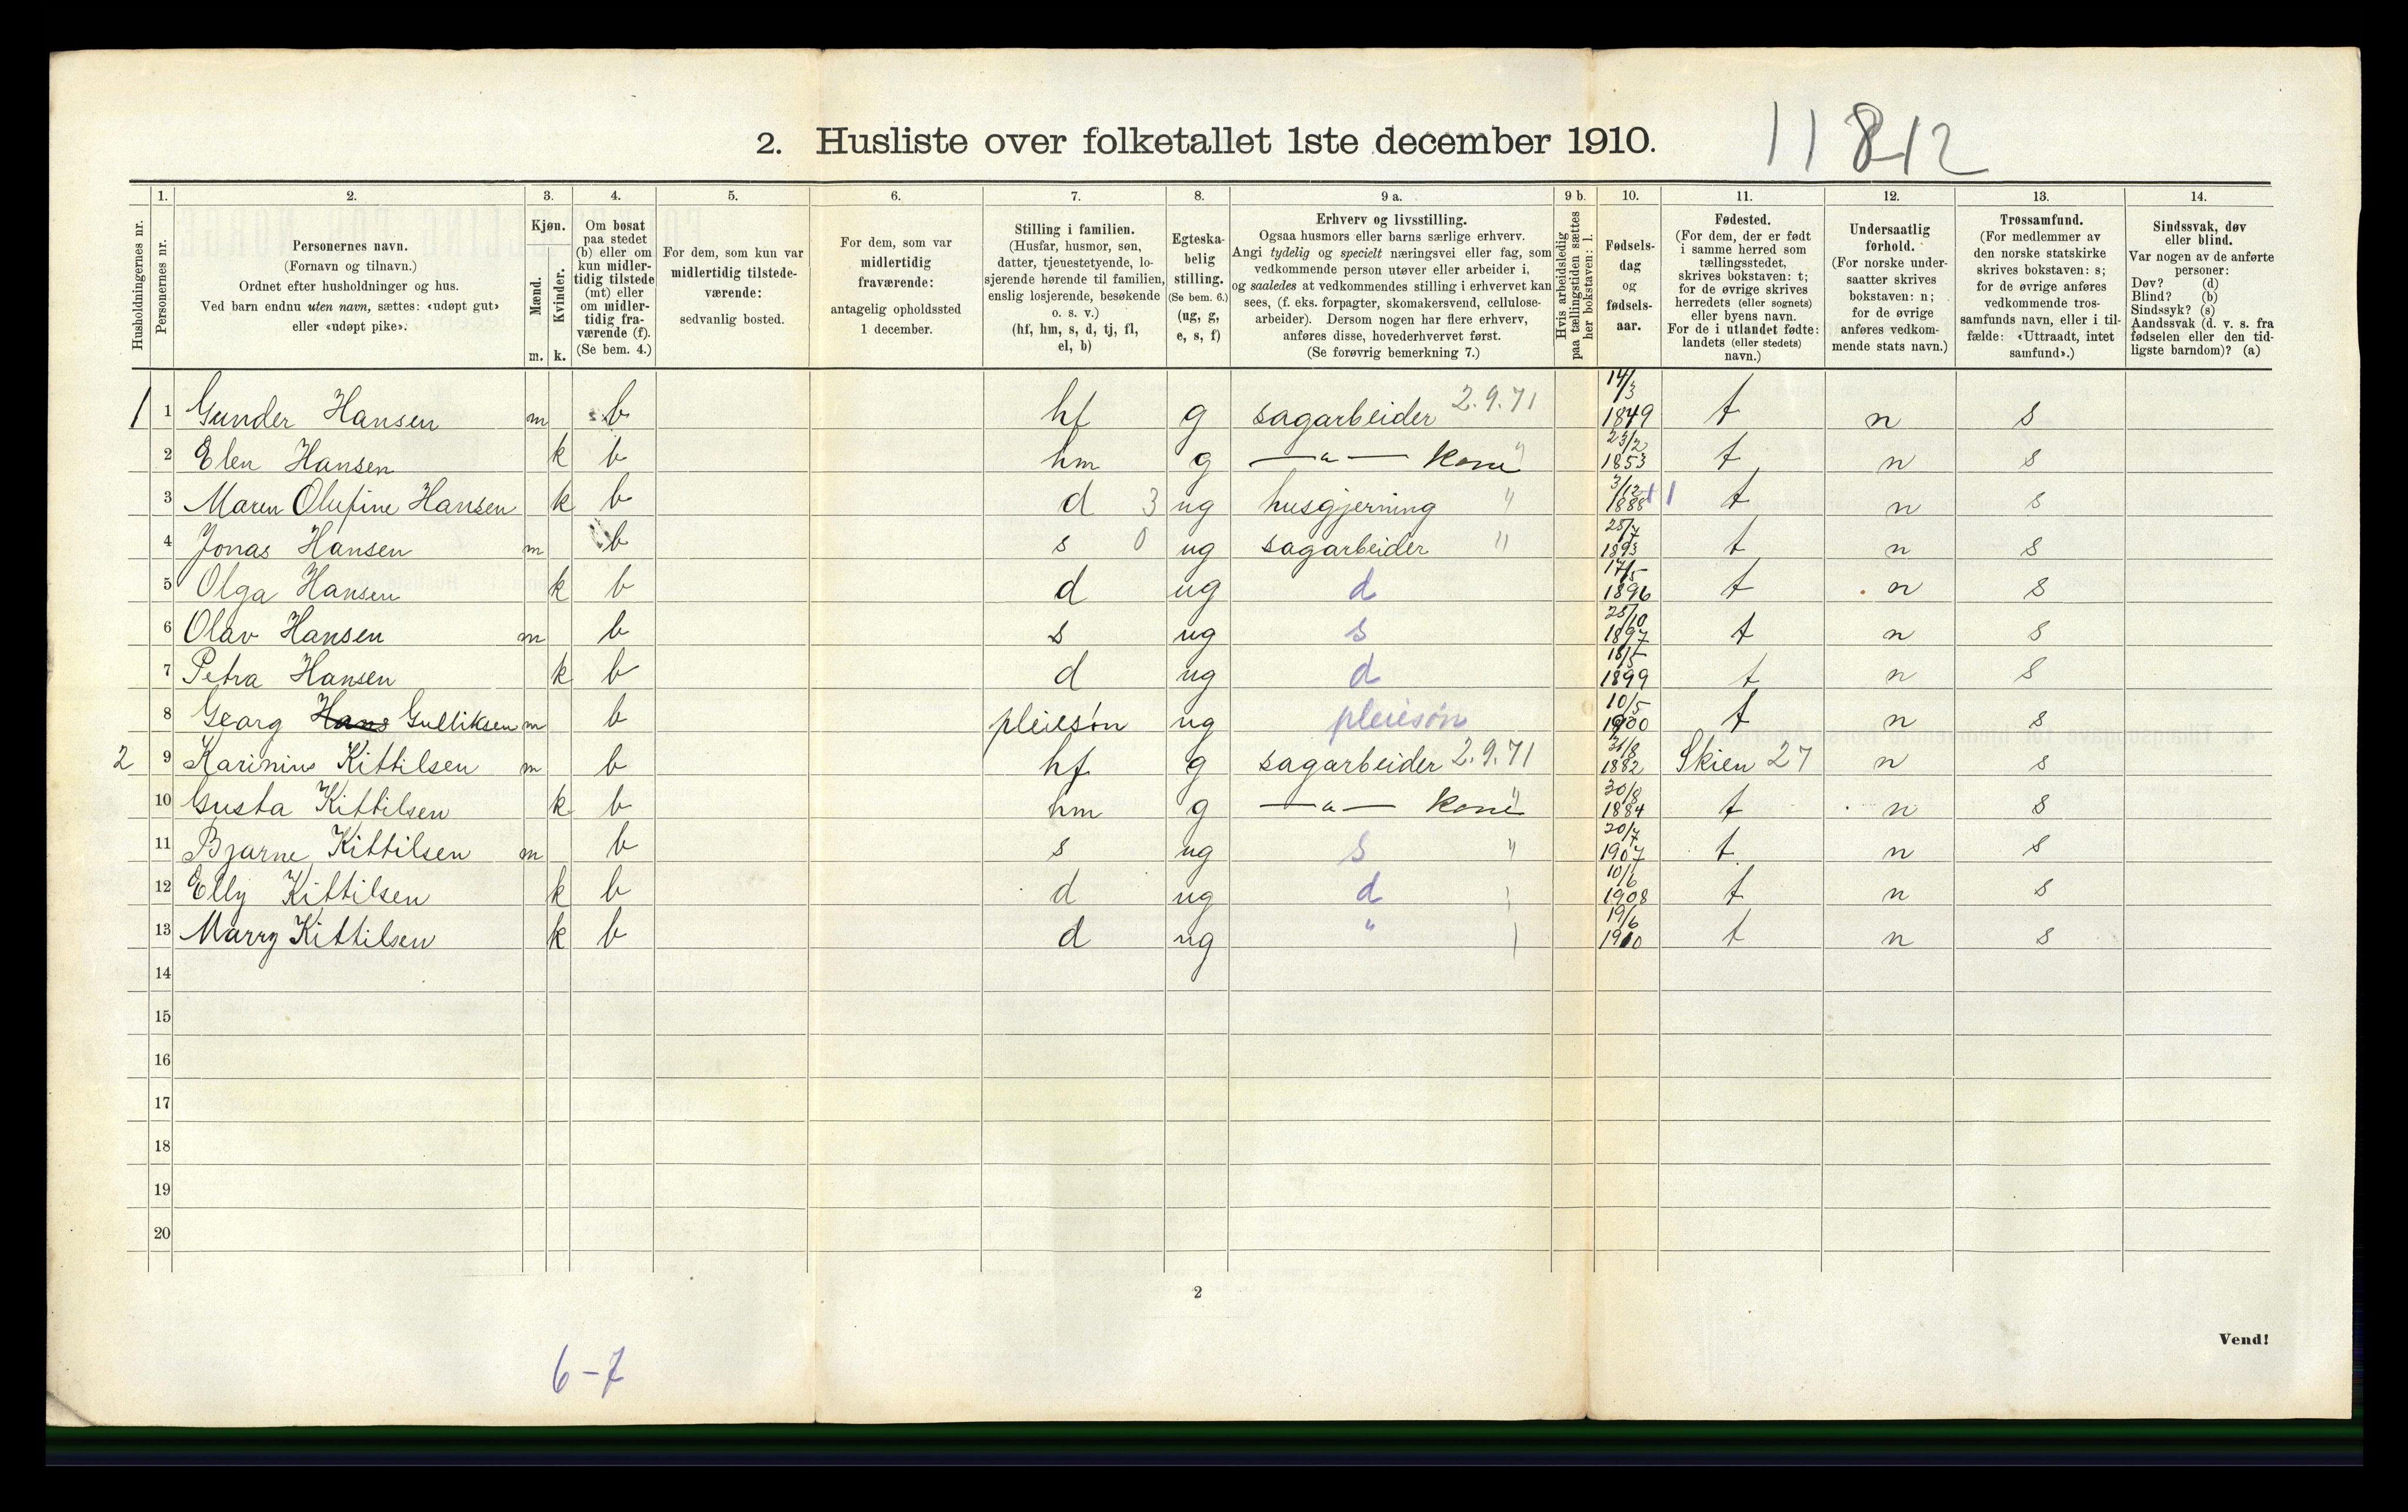 2. Husliste over folketallet 1ste december 1910.
11 812
1. 2. 3. 4. 5. 6. 7. 8. 9 a. 9 b. 10. 11. 12. 13. 14.
Husholdningernes nr.
Personernes nr.
Personernes navn.
(Fornavn og tilnavn.)
Ordnet efter husholdninger og hus.
Ved barn endnu uten navn, sættes: «udøpt gut»
eller «udøpt pike».
Kjøn.
Mænd.
Kvinder.
m. k.
Om bosat
paa stedet
(b) eller om
kun midler-
tidig tilstede
(mt) eller
om midler-
tidig fra-
værende (f).
(Se bem. 4.)
For dem, som kun var
midlertidig tilstede-
værende:
sedvanlig bosted.
For dem, som var
midlertidig
fraværende:
antagelig opholdssted
1 december.
Stilling i familien.
(Husfar, husmor, søn,
datter, tjenestetyende, lo-
sjerende hørende til familien,
enslig losjerende, besøkende
o. s. v.)
(hf, hm, s, d, tj, fl,
el, b)
Egteska-
belig
stilling.
(Se bem. 6.)
(ug, g,
e, s, f)
Erhverv og livsstilling.
Ogsaa husmors eller barns særlige erhverv.
Angi tydelig og specielt næringsvei eller fag, som
vedkommende person utøver eller arbeider i,
og saaledes at vedkommendes stilling i erhvervet kan
sees, (f. eks. forpagter, skomakersvend, cellulose-
arbeider). Dersom nogen har flere erhverv,
anføres disse, hovederhvervet først.
(Se forøvrig bemerkning 7.)
Hvis arbeidsledig
paa tællingstiden sættes
her bokstaven: l.
Fødsels-
dag
og
fødsels-
aar.
Fødested.
(For dem, der er født
i samme herred som
tællingsstedet,
skrives bokstaven: t;
for de øvrige skrives
herredets (eller sognets)
eller byens navn.
For de i utlandet fødte:
landets (eller stedets)
navn.)
Undersaatlig
forhold.
(For norske under-
saatter skrives
bokstaven: n;
for de øvrige
anføres vedkom-
mende stats navn.)
Trossamfund.
(For medlemmer av
den norske statskirke
skrives bokstaven: s;
for de øvrige anføres
vedkommende tros-
samfunds navn, eller i til-
fælde: «Uttraadt, intet
samfund».)
Sindssvak, døv
eller blind.
Var nogen av de anførte
personer:
Døv? (d)
Blind? (b)
Sindssyk? (s)
Aandssvak (d. v. s. fra
fødselen eller den tid-
ligste barndom)? (a)
1 1 Gunder Hansen m b hf g sagarbeider 2.9.71 14/3 1849 t n s
2 Elen Hansen k b hm g —"— kone " 23/2 1853 t n s
3 Maren Olufine Hansen k b d 3 ug husgjerning " 3/12 1888 1 t n s
4 Jonas Hansen m b s 0 ug sagarbeider " 25/7 1893 t n s
5 Olga Hansen k b d ug d 17/5 1896 t n s
6 Olav Hansen m b s ug s 25/10 1897 t n s
7 Petra Hansen k b d ug d 18/5 1899 t n s
8 Georg Hans Gulliksen m b pleiesøn ug pleiesøn 10/5 1900 t n s
2 9 Karinius Kittilsen m b hf g sagarbeider 2.9.71 31/8 1882 Skien 27 n s
10 Gusta Kittilsen k b hm g —"— kone " 30/8 1884 t n s
11 Bjarne Kittilsen m b s ug s " 20/7 1907 t n s
12 Elly Kittilsen k b d ug d 10/6 1908 t n s
13 Marry Kittilsen k b d ug " 19/6 1910 t n s
14
15
16
17
18
19
20
2
Vend!
6-7